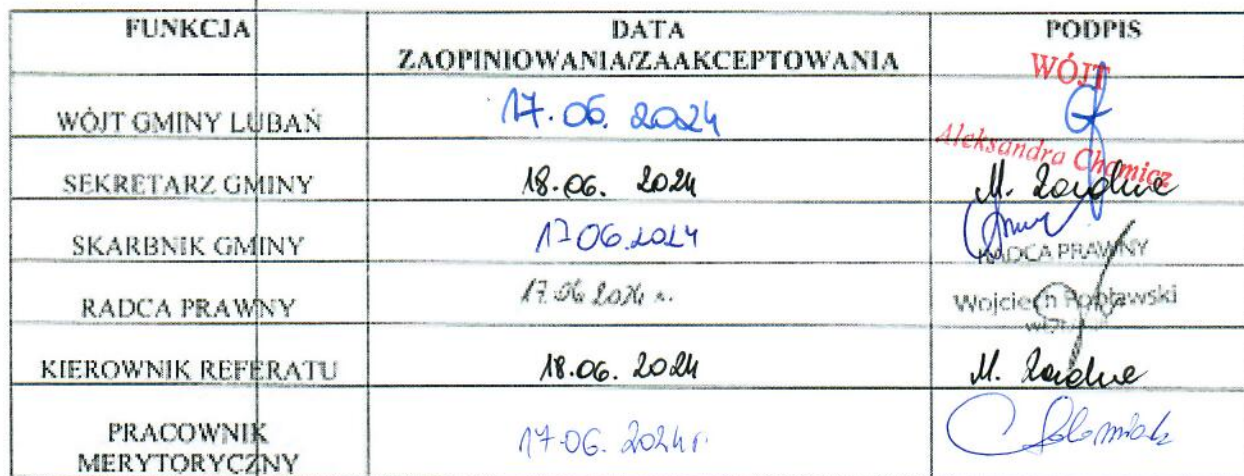 FUNKCJA
DATA ZAOPINIOWANIA/ZAAKCEPTOWANIA
PODPIS
WÓJT GMINY LUBAŃ
17.06. 2024
WÓJT
Aleksandra Chomicz
SEKRETARZ GMINY
18.06. 2024
M.
SKARBNIK GMINY
17.06.2024
RADCA PRAWNY
RADCA PRAWNY
17.06.2024 r.
Wojciech Popławski
KIEROWNIK REFERATU
18.06. 2024
M.
PRACOWNIK
MERYTORYCZNY
17.06. 2024 r.